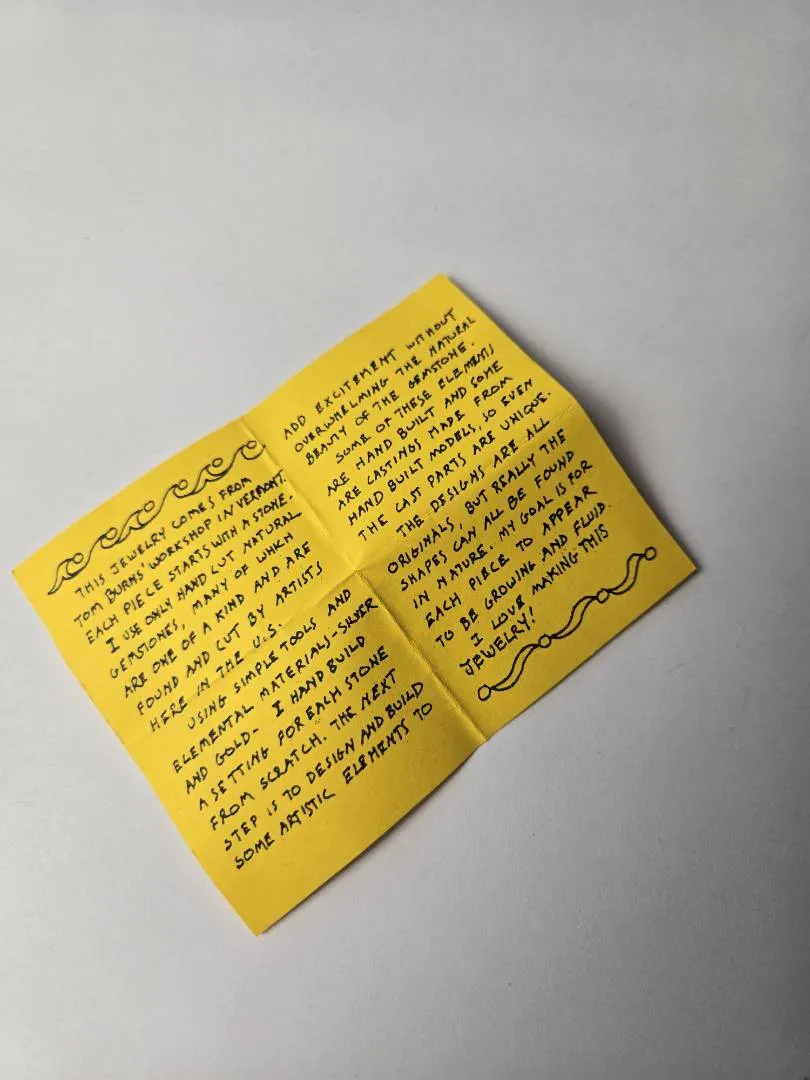 THIS JEWELRY COMES FROM
TOM BURNS' WORKSHOP IN VERMONT.
EACH PIECE STARTS WITH A STONE.
I USE ONLY HAND CUT NATURAL
GEMSTONES, MANY OF WHICH
ARE ONE OF A KIND AND ARE
FOUND AND CUT BY ARTISTS
HERE IN THE U.S.
USING SIMPLE TOOLS AND
ELEMENTAL MATERIALS-SILVER
AND GOLD- I HAND BUILD
A SETTING FOR EACH STONE
FROM SCRATCH. THE NEXT
STEP IS TO DESIGN AND BUILD
SOME ARTISTIC ELEMENTS TO
ADD EXCITEMENT WITHOUT
OVERWHELMING THE NATURAL
BEAUTY OF THE GEMSTONE.
SOME OF THESE ELEMENTS
ARE HAND BUILT AND SOME
ARE CASTINGS MADE FROM
HAND BUILT MODELS, SO EVEN
THE CAST PARTS ARE UNIQUE.
THE DESIGNS ARE ALL
ORIGINALS, BUT REALLY THE
SHAPES CAN ALL BE FOUND
IN NATURE. MY GOAL IS FOR
EACH PIECE TO APPEAR
TO BE GROWING AND FLUID.
I LOVE MAKING THIS
JEWELRY!